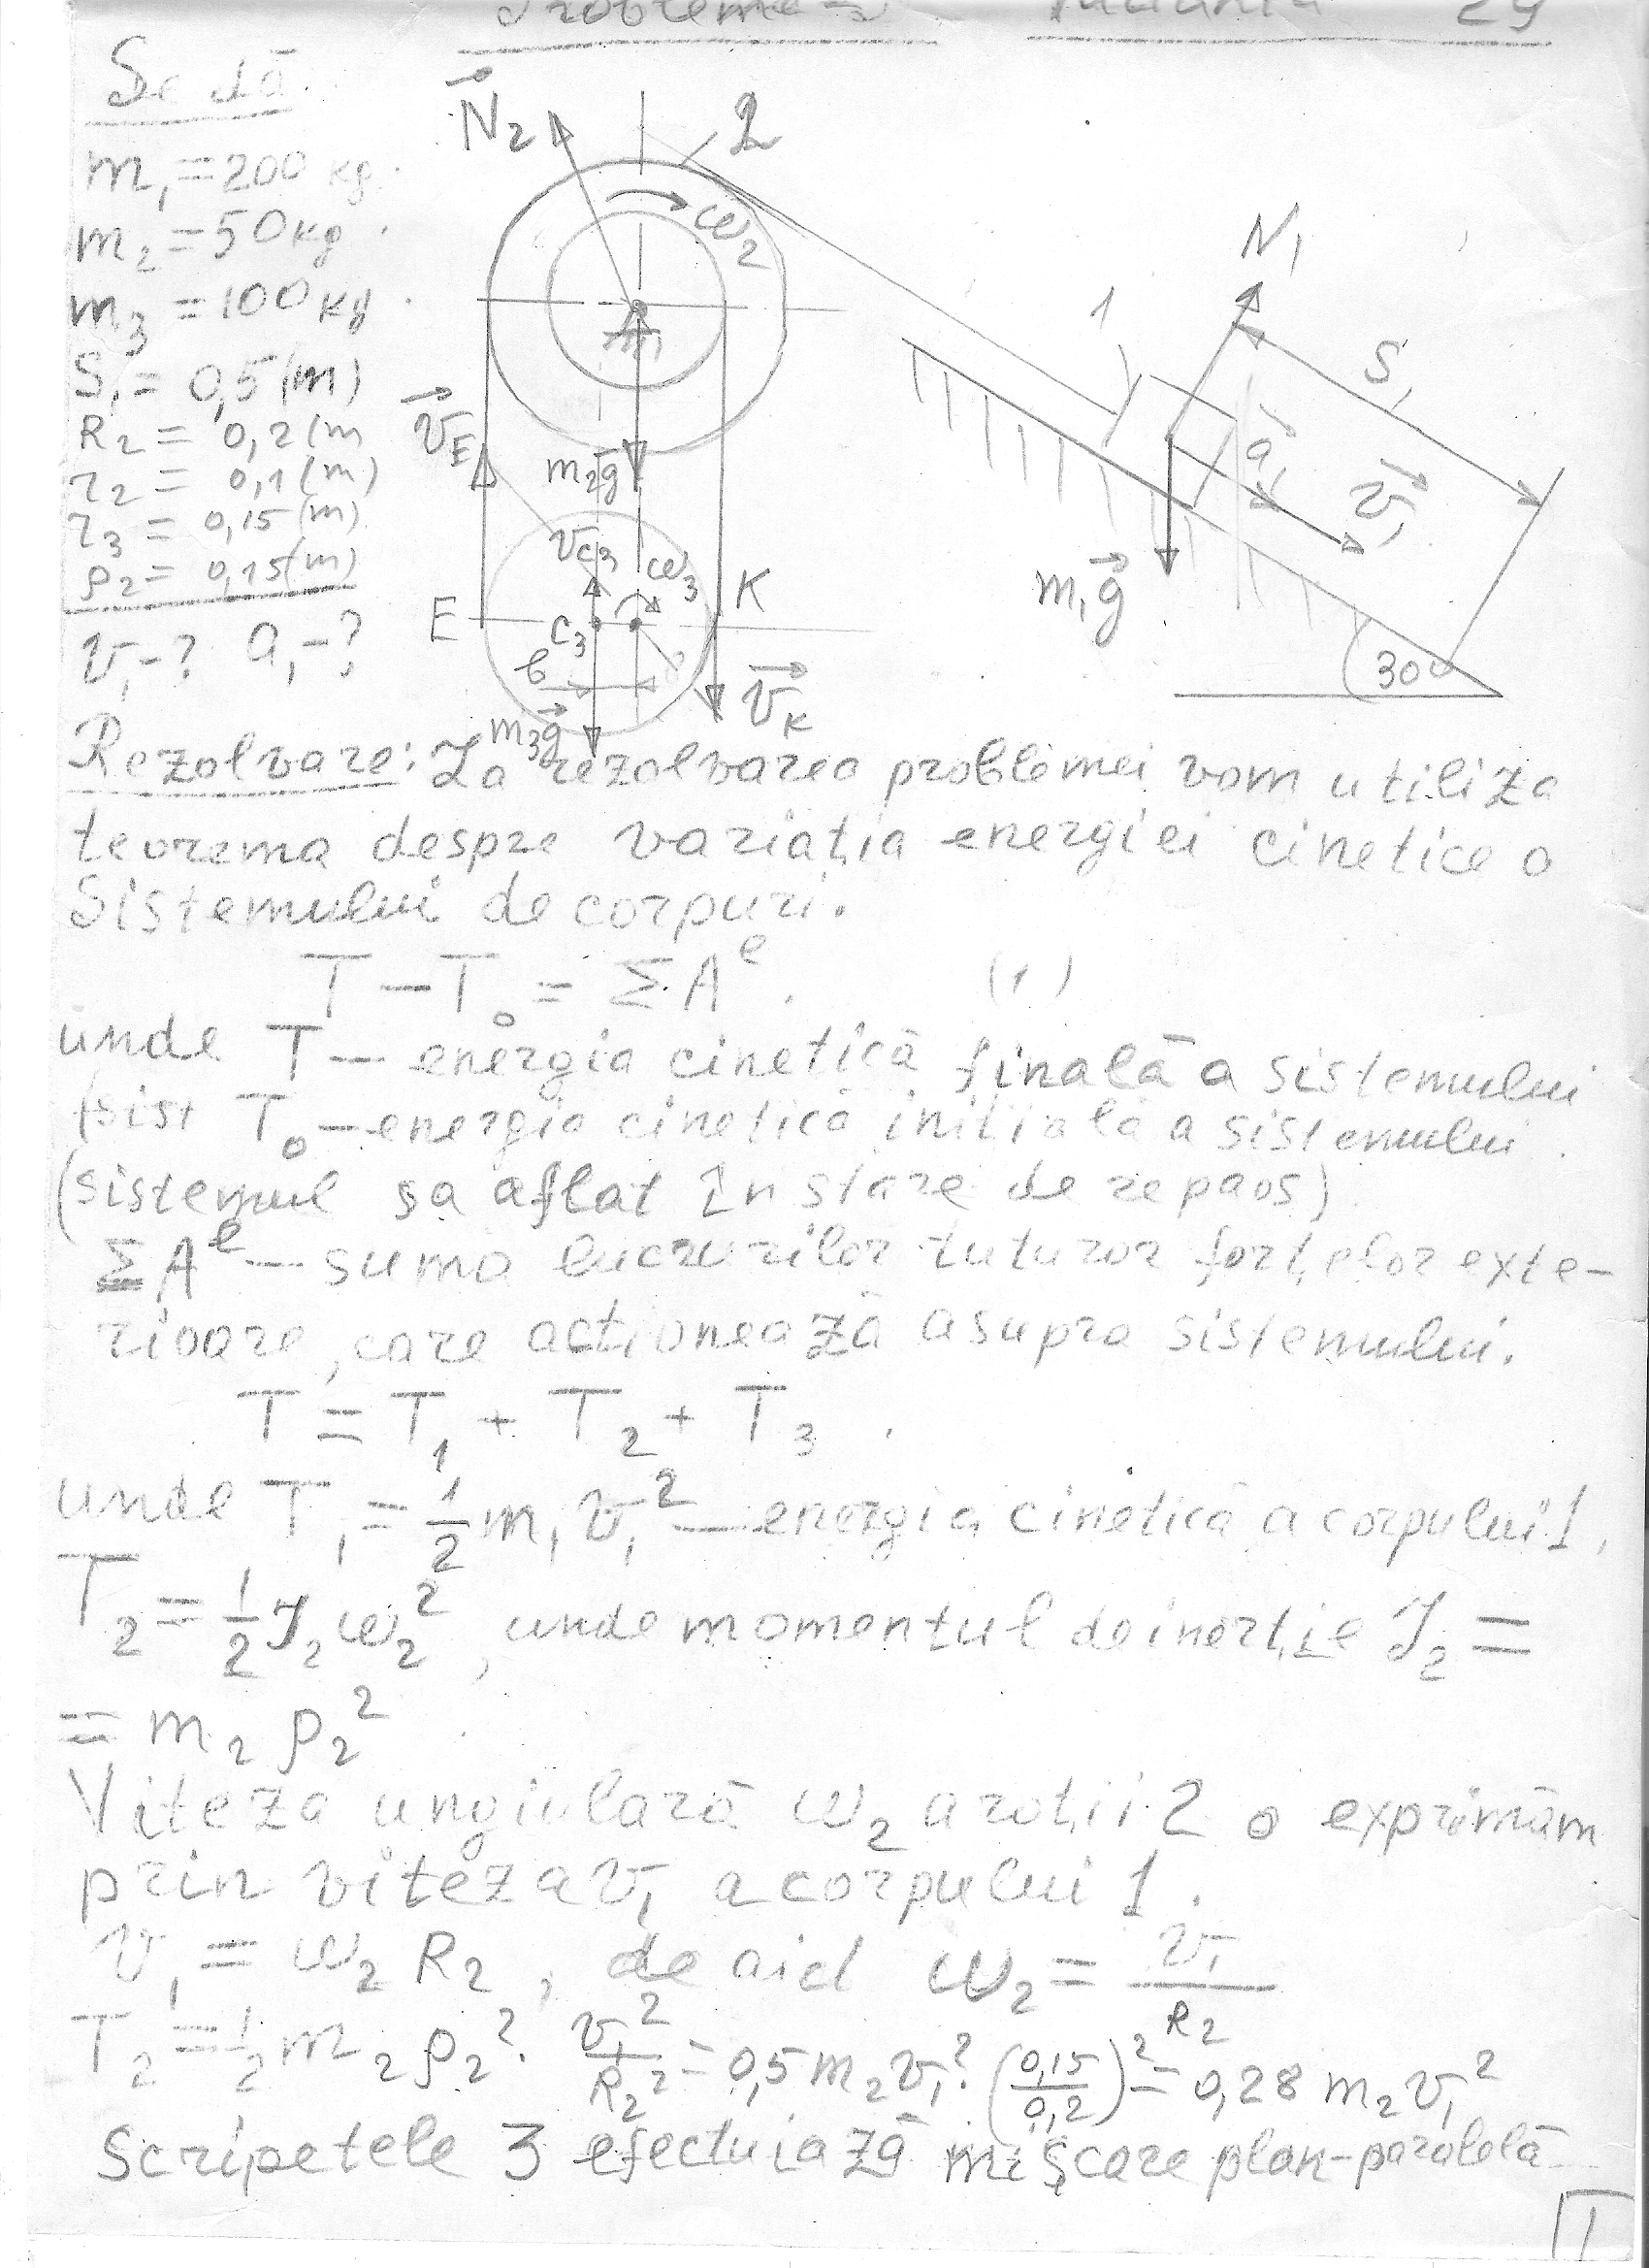 Problema 29
Se dă
m₁ = 200 kg.
m₂ = 50 kg.
m₃ = 100 kg.
S₁ = 0,5 (m)
R₂ = 0,2 (m
r₂ = 0,1 (m)
r₃ = 0,15 (m)
ρ₂ = 0,15 (m)
v₁ - ? a₁ - ?
N₂ 2
ω₂
N₁
1
S₁
v_E
m₂g
a₁
v₁
v_C₃ ω₃
m₁g
E C₃ K
b
30°
m₃g v_K
Rezolvare: La rezolvarea problemei vom utiliza
teorema despre variația energiei cinetice a
sistemului de corpuri.
T – T₀ = ΣAᵉ. (1)
unde T – energia cinetică finală a sistemului
(sist T₀ – energia cinetică initială a sistemului.
(sistemul sa aflat în stare de repaos)
ΣAᵉ – suma lucrurilor tuturor forțelor exte-
rioare, care acționează asupra sistemului.
T = T₁ + T₂ + T₃.
unde T₁ = 1/2 m₁v₁² – energia cinetică a corpului 1,
T₂ = 1/2 J₂ω₂², unde momentul de inerție J₂ =
= m₂ρ₂²
Viteza unghiulară ω₂ a roții 2 o exprimăm
prin viteza v₁ a corpului 1.
v₁ = ω₂ R₂, de aici ω₂ = v₁/R₂
T₂ = 1/2 m₂ρ₂² · v₁²/R₂² = 0,5 m₂v₁² (0,15/0,2)² = 0,28 m₂v₁²
Scripetele 3 efectuiază mișcare plan-paralelă
1